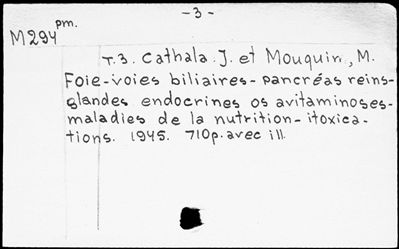 -3-
pm.
M294
T.3. Cathala J. et Mouquin, M.
Foie-voies biliaires-pancréas reins-
glandes endocrines os avitaminoses-
maladies de la nutrition-itoxica-
tions. 1945. 710p. avec ill.